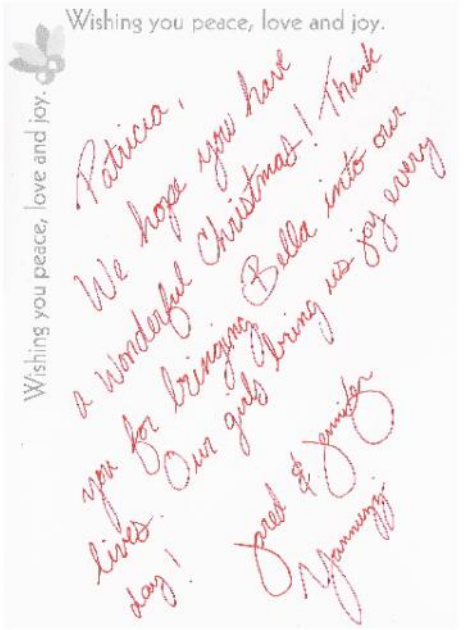 Wishing you peace, love and joy.
Wishing you peace, love and joy.
Patricia,
We hope you have
a wonderful Christmas! Thank
you for bringing Bella into our
lives. Our girls bring us joy every
day!
Jared & Jennifer
Yannuzzi